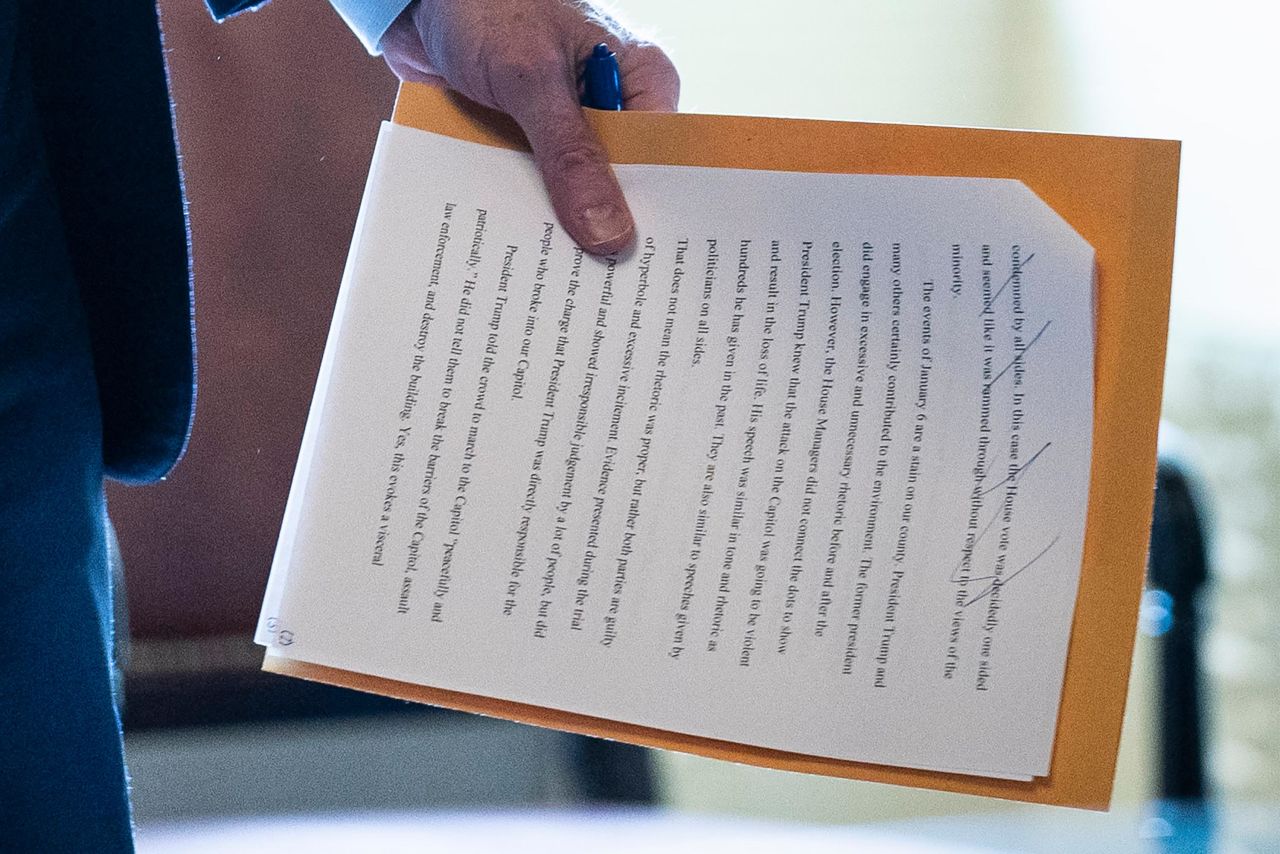 condemned by all sides. In this case the House vote was decidedly one sided
and seemed like it was rammed through without respect to the views of the
minority.
The events of January 6 are a stain on our county. President Trump and
many others certainly contributed to the environment. The former president
did engage in excessive and unnecessary rhetoric before and after the
election. However, the House Managers did not connect the dots to show
President Trump knew that the attack on the Capitol was going to be violent
and result in the loss of life. His speech was similar in tone and rhetoric as
hundreds he has given in the past. They are also similar to speeches given by
politicians on all sides.
That does not mean the rhetoric was proper, but rather both parties are guilty
of hyperbole and excessive incitement. Evidence presented during the trial
powerful and showed irresponsible judgement by a lot of people, but did
prove the charge that President Trump was directly responsible for the
people who broke into our Capitol.
President Trump told the crowd to march to the Capitol "peacefully and
patriotically." He did not tell them to break the barriers of the Capitol, assault
law enforcement, and destroy the building. Yes, this evokes a visceral
(2)
(3)